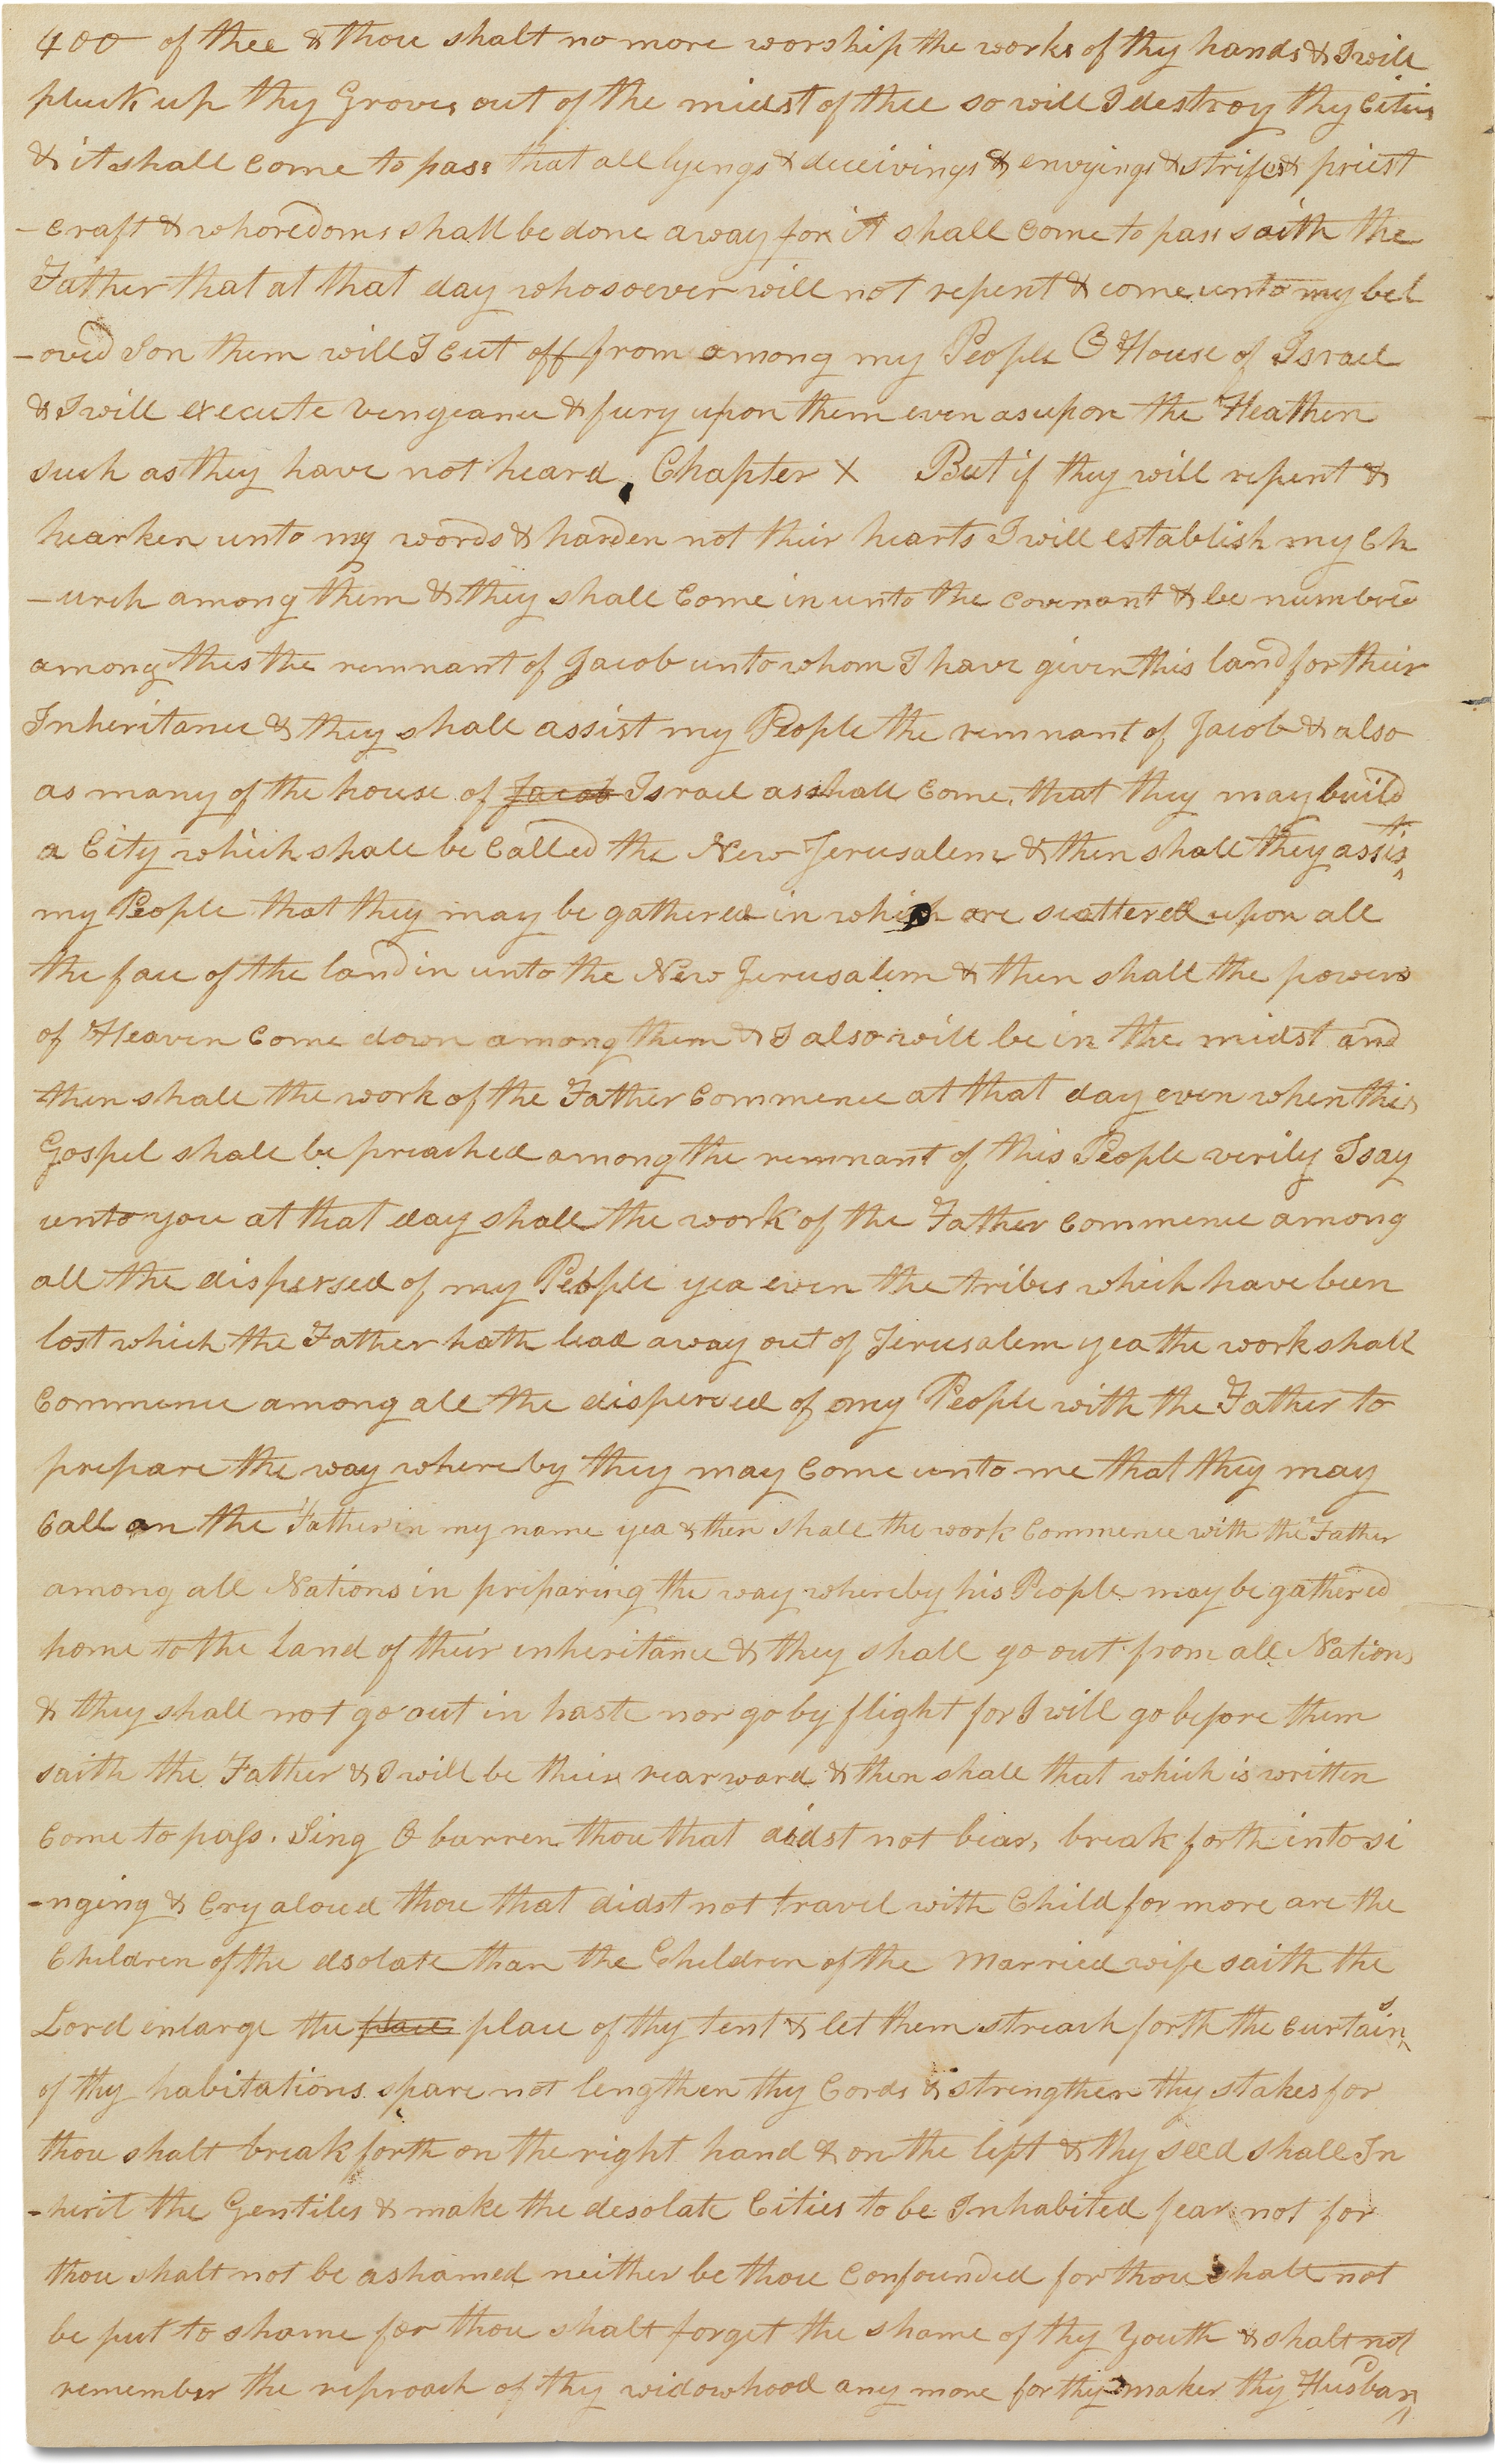 400 of thee & thou shalt no more worship the works of thy hands & I will
pluck up thy Groves out of the midst of thee so will I destroy thy Cities
& it shall Come to pass that all lyengs & deceivings & envyings & strifes & priest
-craft & whoredoms shall be done away for it shall Come to pass saith the
Father that at that day whosoever will not repent & come unto my bel
-oved Son them will I Cut off from among my People O House of Israel
& I will execute vengeance & fury upon them even as upon the Heathen
such as they have not heard. Chapter X But if they will repent &
hearken unto my words & harden not their hearts I will establish my Ch
-urch among them & they shall Come in unto the Covenant & be numbered
among this the remnant of Jacob unto whom I have given this land for their
Inheritance & they shall assist my People the remnant of Jacob & also
as many of the house of Jacob Israel as shall Come, that they may build
a City which shall be Called the New Jerusalem & then shall they assist
my People that they may be gathered in which are scattered upon all
the face of the land in unto the New Jerusalem & then shall the powers
of Heaven Come down among them & I also will be in the midst and
then shall the work of the Father Commence at that day even when this
Gospel shall be preached among the remnant of this People verily I say
unto you at that day shall the work of the Father Commence among
all the dispersed of my People yea even the tribes which have been
lost which the Father hath lead away out of Jerusalem yea the work shall
Commence among all the dispersed of my People with the Father to
prepare the way whereby they may Come unto me that they may
Call on the Father in my name yea & then shall the work Commence with the Father
among all Nations in preparing the way whereby his People may be gathered
home to the land of their inheritance & they shall go out from all Nations
& they shall not go out in haste nor go by flight for I will go before them
saith the Father & I will be their rearward & then shall that which is written
Come to pass. Sing O barren thou that didst not bear, break forth into si
-nging & Cry aloud thou that didst not travel with Child for more are the
Children of the dsolate than the Children of the Married wife saith the
Lord enlarge the place place of thy tent & let them streach forth the Curtains
of thy habitations spare not lengthen thy Cords & strengthen thy stakes for
thou shalt break forth on the right hand & on the left & thy seed shall In
-herit the Gentiles & make the desolate Cities to be Inhabited fear not for
thou shalt not be ashamed neither be thou Confounded for thou shalt not
be put to shame for thou shalt forget the shame of thy Youth & shalt not
remember the reproach of thy widowhood any more for thy maker thy Husband